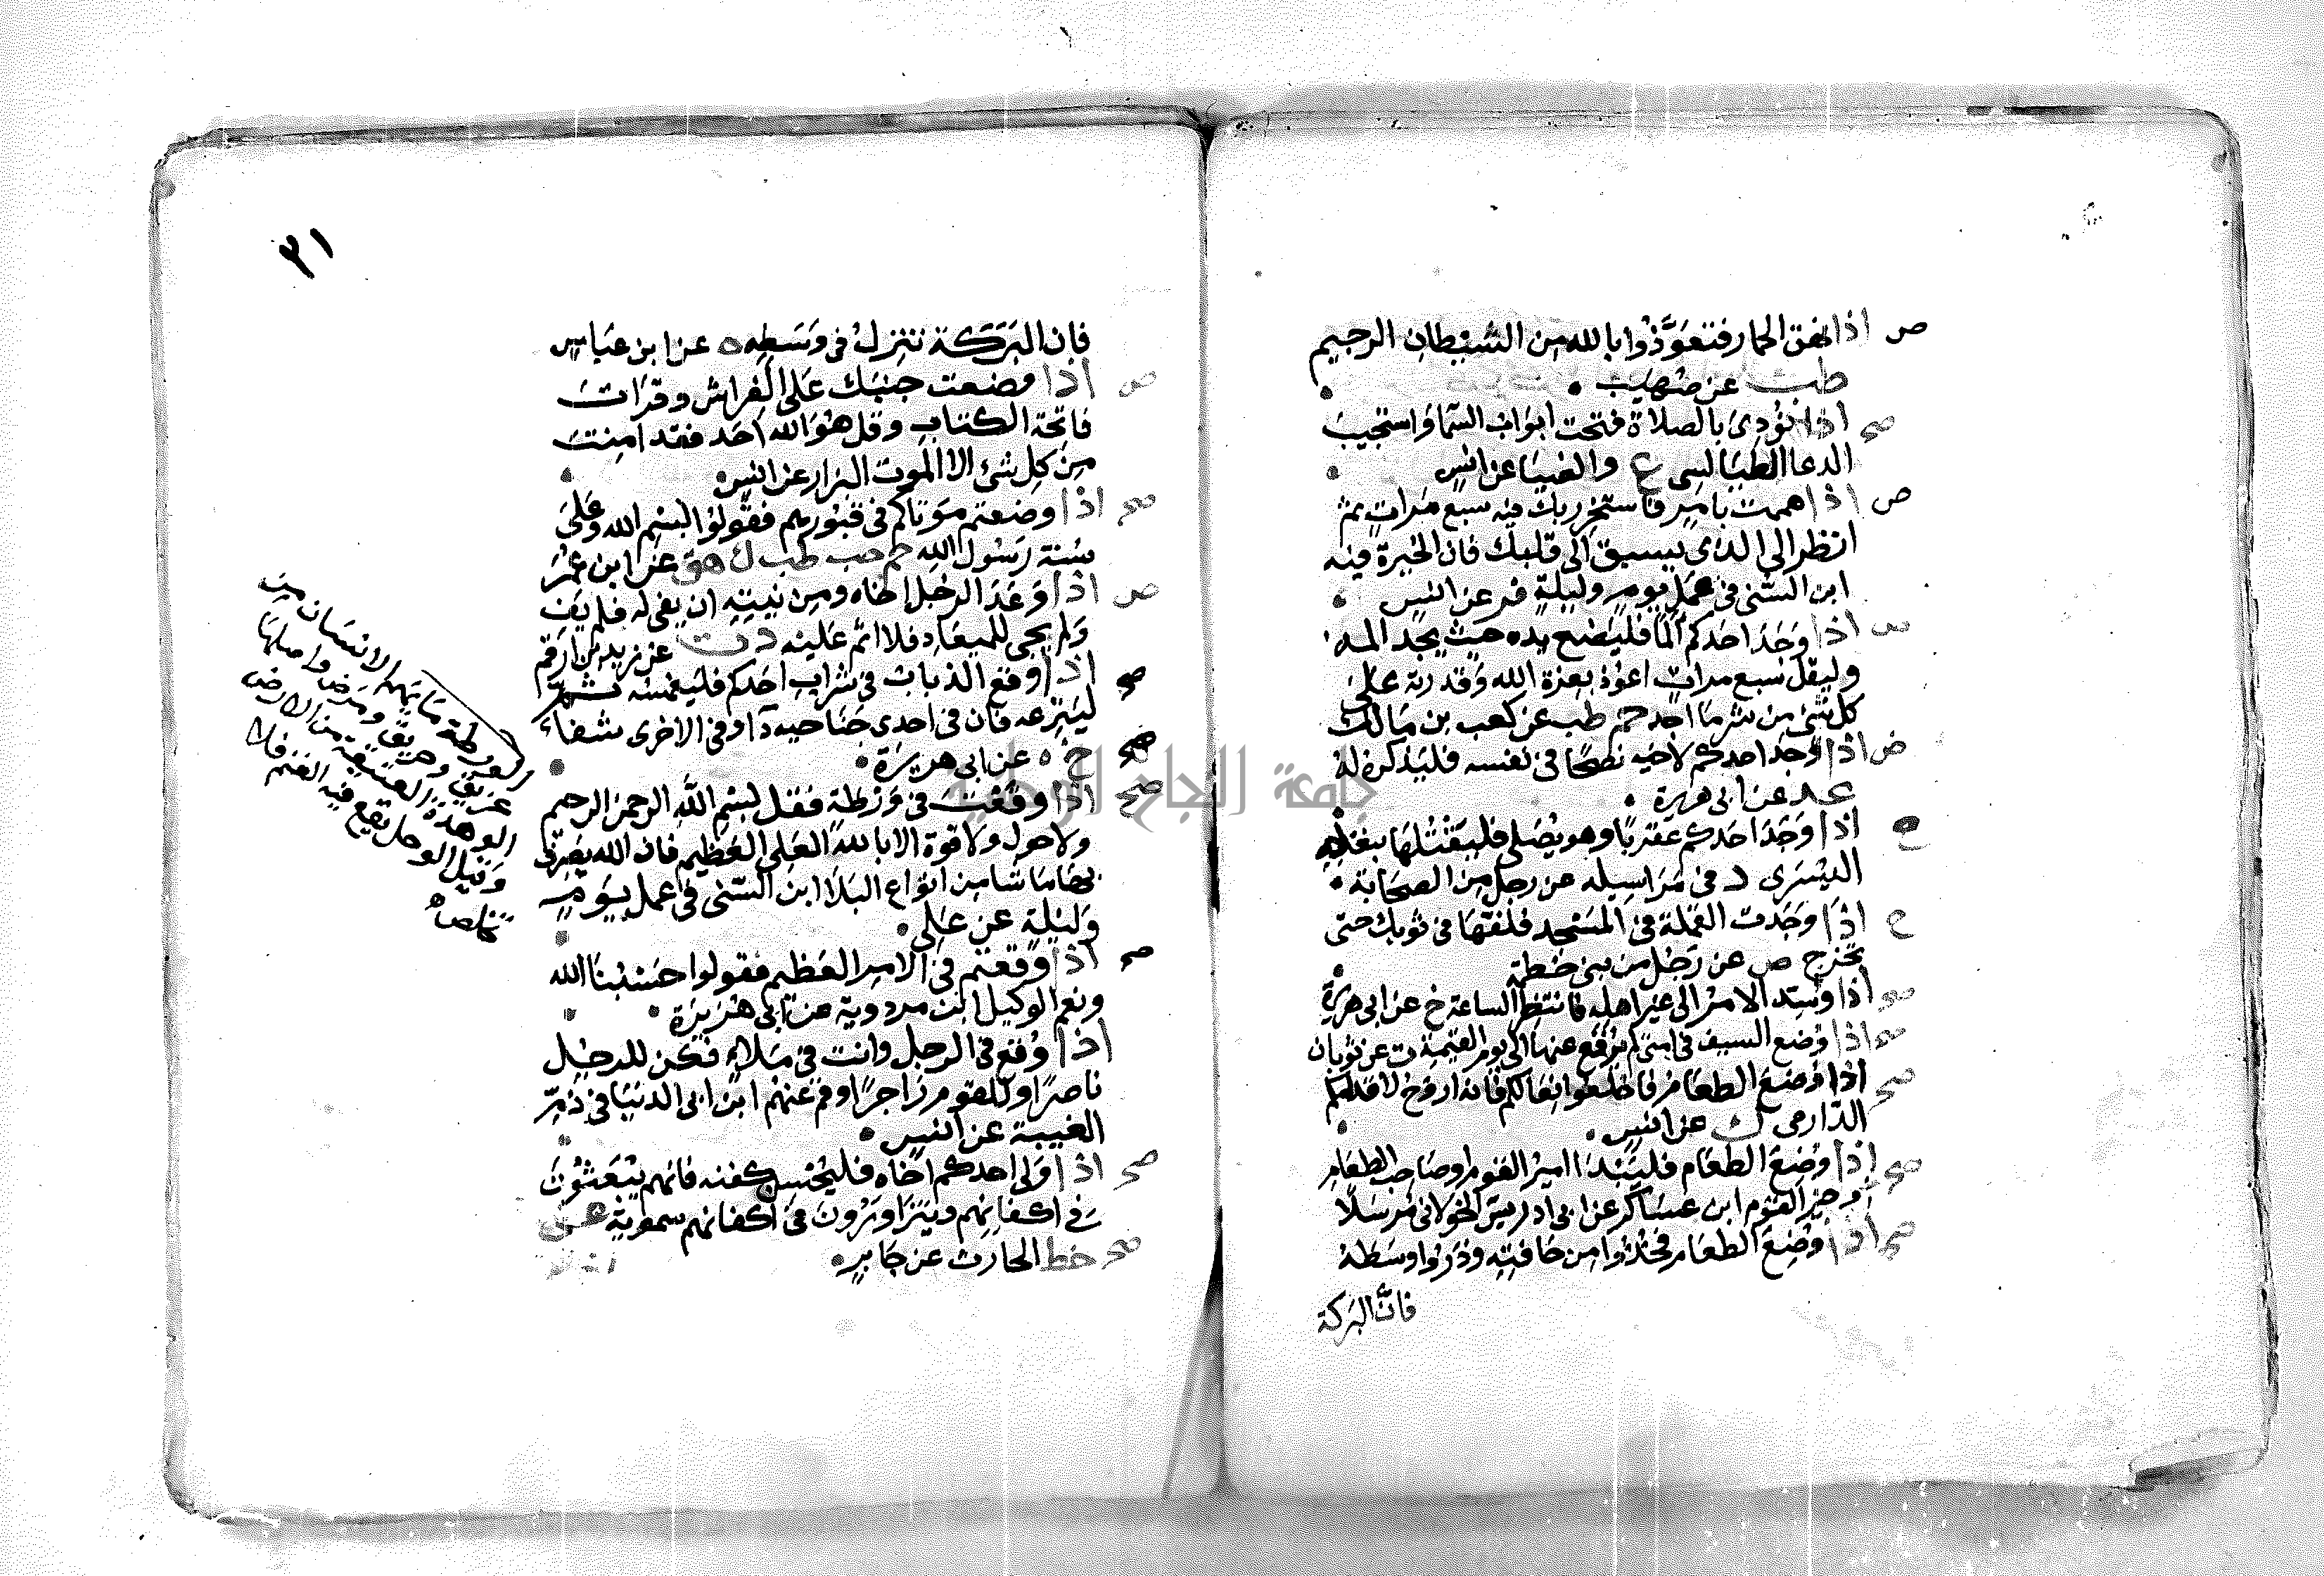 ص اذا نهق الحمار فتعوذوا بالله من الشيطان الرجيم
طب عن صهيب
صح اذا نودى بالصلاة فتحت ابواب السما واستجيب
الدعا الطيالسى ع والضيا عن انس
ض اذا هممت بامر فاستخر ربك فيه سبع مرات ثم
انظر الى الذى يسبق الى قلبك فان الخيرة فيه
ابن السنى فى عمل يوم وليلة فر عن انس
اذا وجد احدكم الما فليضع يده حيث يجد المه
وليقل سبع مرات اعوذ بعزة الله وقدرته على
كل شئ من شر ما اجد حم طب عن كعب بن مالك
ض اذا وجد احدكم لاخيه نصحا فى نفسه فليذكره له
عد عن ابى هريرة
اذا وجد احدكم عقربا وهو يصلى فليقتلها بنعله
اليسرى د فى مراسيله عن رجل من الصحابة
ح اذا وجدت القملة فى المسجد فلفها فى ثوبك حتى
تخرج ص عن رجل من بنى خطمة
صح اذا وسد الامر الى غير اهله فانتظر الساعة خ عن ابى هريرة
صح اذا وضع السيف فى امتى لم يرفع عنها الى يوم القيمة ت عن ثوبان
صح اذا وضع الطعام فاخلعوا نعالكم فانه اروح لاقدامكم
الدارمى ك عن انس
صح اذا وضع الطعام فليبدا امير القوم او صاحب الطعام
او خير القوم ابن عساكر عن ابى ادريس الخولانى مرسلا
صح اذا وضع الطعام فخذوا من حافته وذروا وسطه
فان البركة
٢١
فان البركة تنزل فى وسطه ه عن ابن عباس
ض اذا وضعت جنبك على الفراش وقرات
فاتحة الكتاب وقل هو الله احد فقد امنت
من كل شئ الا الموت البزار عن انس
صح اذا وضعتم موتاكم فى قبورهم فقولوا بسم الله وعلى
سنة رسول الله حم حب طب ك هق عن ابن عمر
ض اذا وعد الرجل اخاه ومن نيته ان يفى له فلم يف
ولم يجى للميعاد فلا اثم عليه د ت عن زيد بن ارقم
صح اذا وقع الذباب فى شراب احدكم فليغمسه ثم
لينزعه فان فى احدى جناحيه دآ وفى الاخرى شفاء
صح خ ه عن ابى هريرة
صح اذا وقعت فى ورطة فقل بسم الله الرحمن الرحيم
ولا حول ولا قوة الا بالله العلى العظيم فان الله يصرف
بها ما شا من انواع البلا ابن السنى فى عمل يوم
وليلة عن على
صح اذا وقعتم فى الامر العظيم فقولوا حسبنا الله
ونعم الوكيل ابن مردويه عن ابى هريرة
اذا وقع فى الرجل وانت فى ملا فكن للرجل
ناصرا وللقوم زاجرا وقم عنهم ابن ابى الدنيا فى ذم
الغيبة عن انس
صح اذا ولى احدكم اخاه فليحسن كفنه فانهم يبعثون
فى اكفانهم ويتزاورون فى اكفانهم سمويه عق
صح خط الحارث عن جابر
الورطة ما يهم الانسان من
غريق وحريق ومرض واصلها
الوهدة العميقة من الارض
وقيل الوحل تقع فيه الغنم فلا
تخلص
جامعة النجاح الوطنية